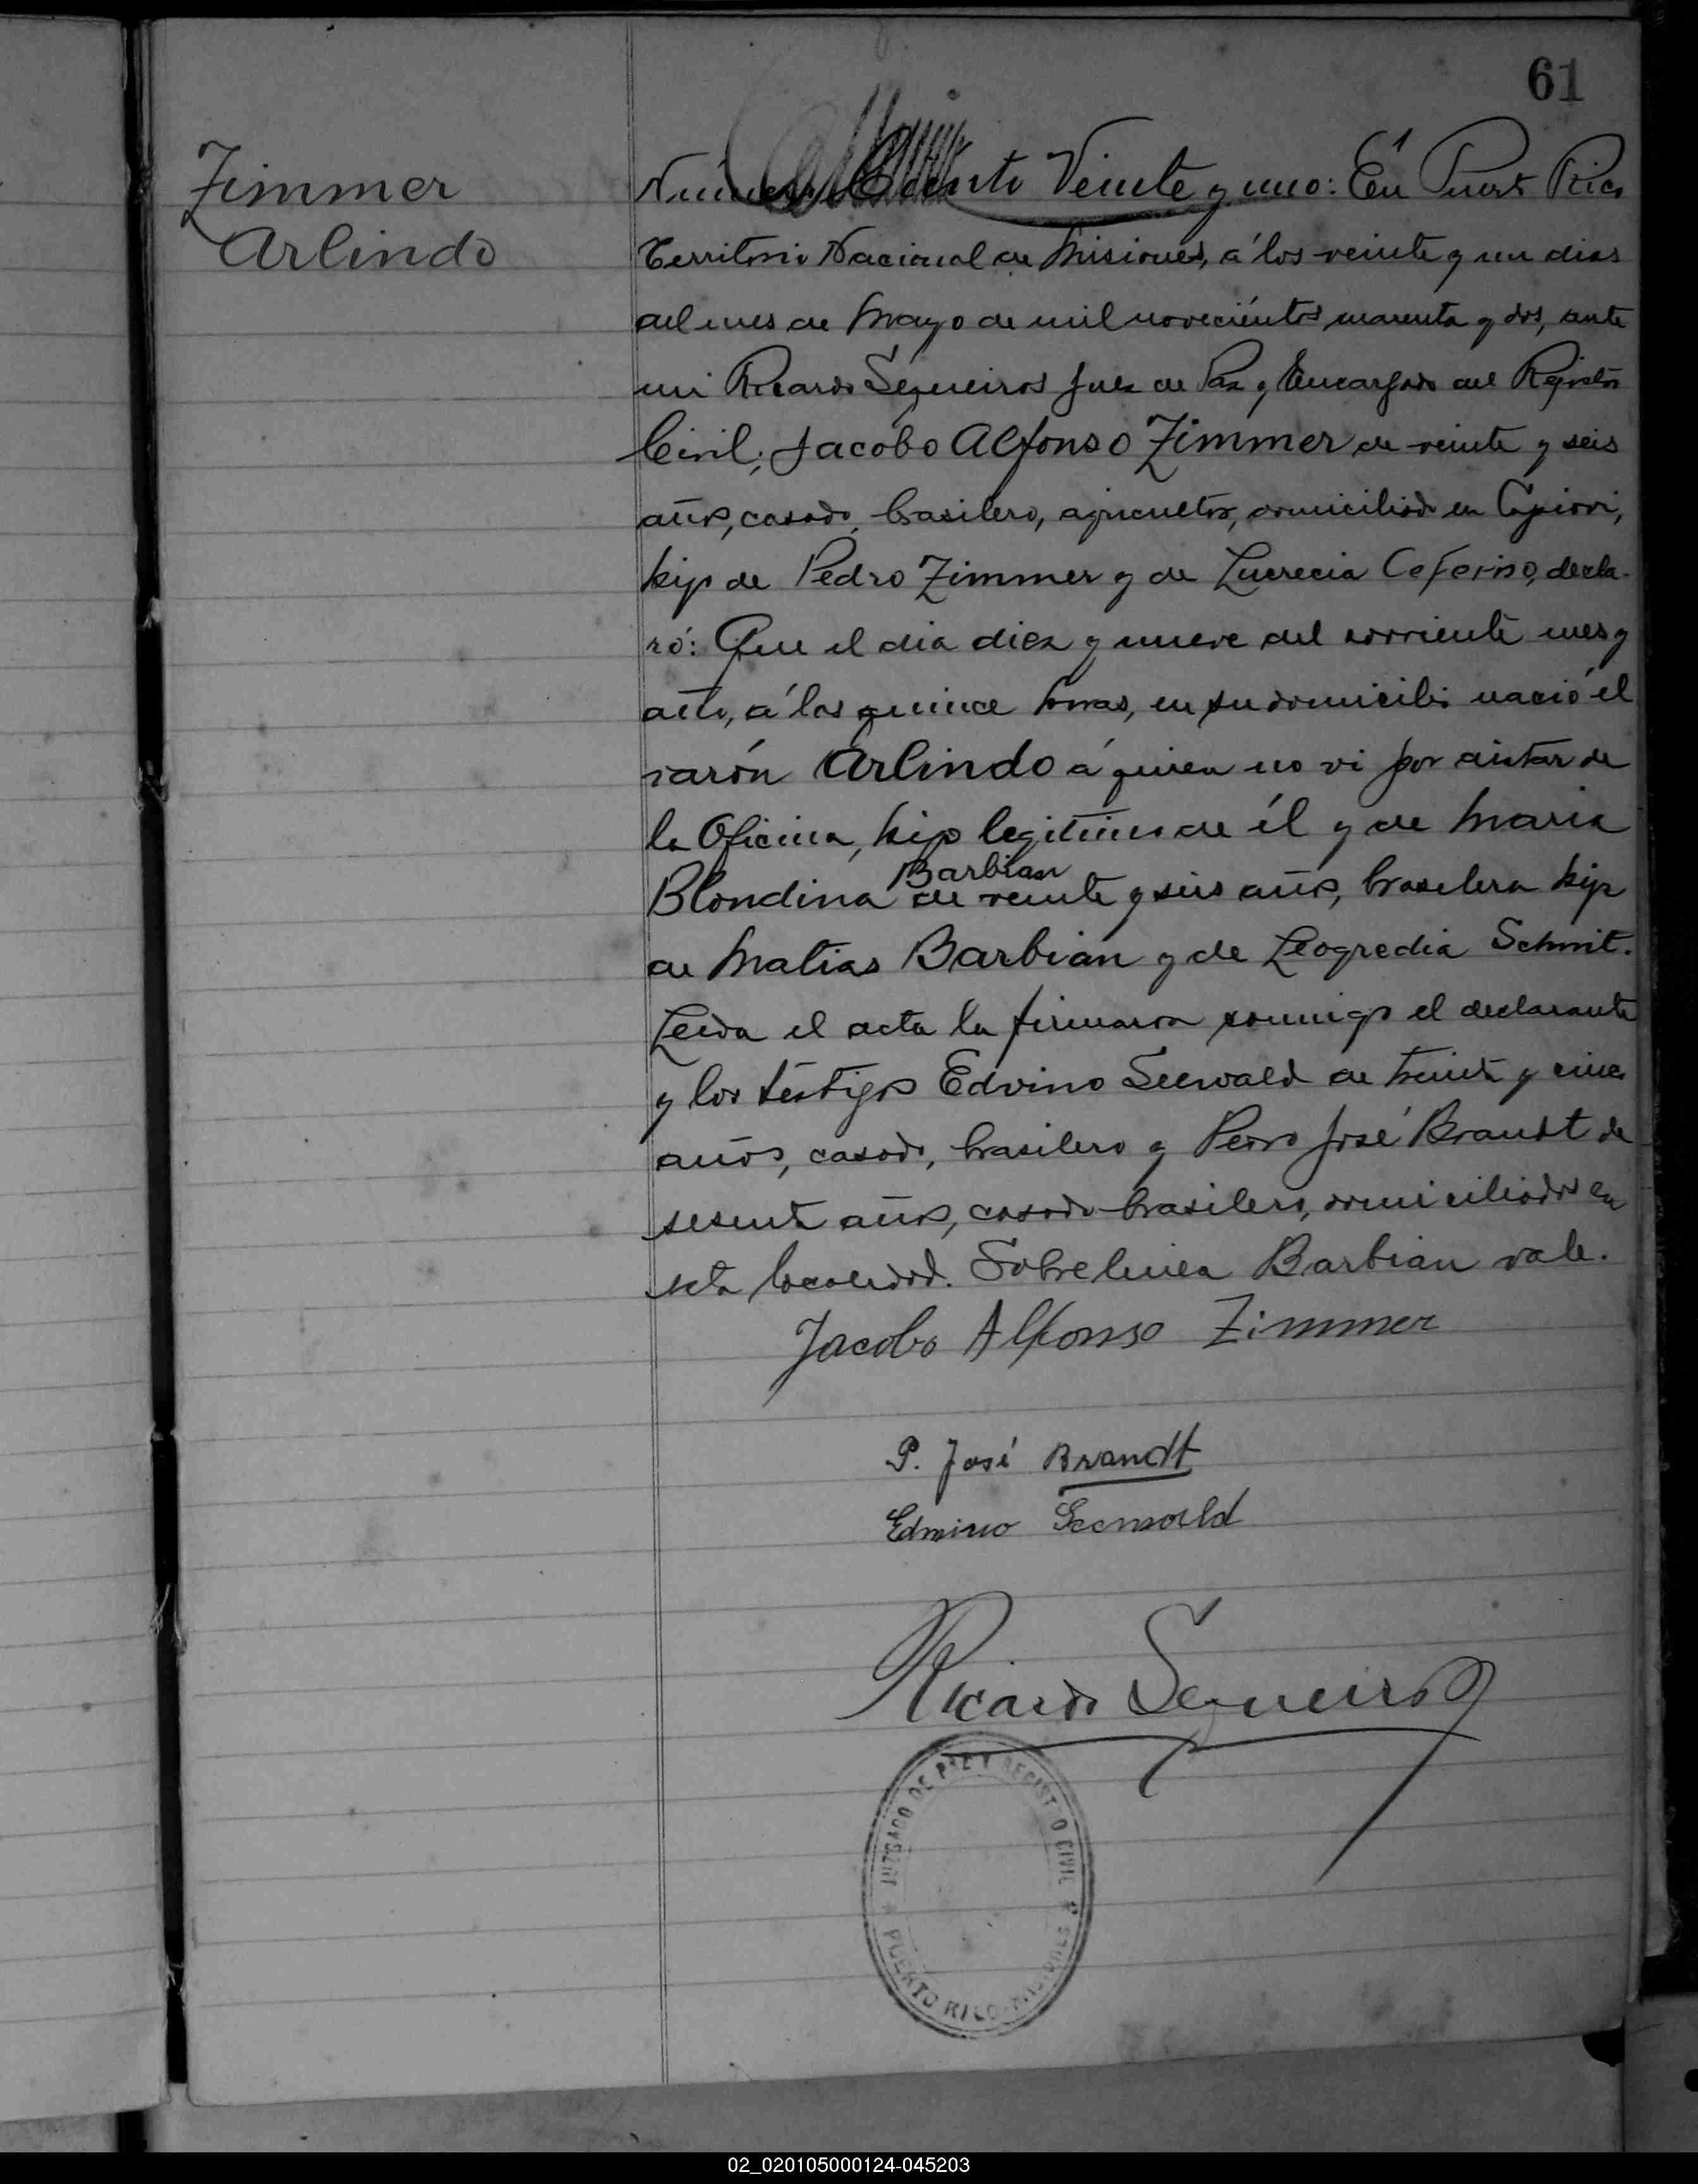 61
Zimmer
Arlindo
Número Ciento Veinte y uno: En Puerto Rico
Territorio Nacional de Misiones, á los veinte y un dias
del mes de Mayo de mil novecientos cuarenta y dos, ante
mi Ricardo Sequeiros Juez de Paz y Encargado del Registro
Civil; Jacobo Alfonso Zimmer de veinte y seis
años, casado, brasilero, agricultor, domiciliado en Capiovi,
hijo de Pedro Zimmer y de Lucrecia Ceferino, decla-
ró: Que el dia diez y nueve del corriente mes y
año, á las quince horas, en su domicilio nació el
varón Arlindo á quien no vi por distar de
la Oficina, hijo legitimo de él y de Maria
Barbian
Blondina de veinte y seis años, brasilera hija
de Matias Barbian y de Leogredia Schmit.
Leida el acta la firmaron conmigo el declarante
y los testigos Edvino Seewald de treinta y cinco
años, casado, brasilero y Pedro José Brandt de
sesenta años, casado brasilero, domiciliados en
esta localidad. Sobrelinea Barbian vale.
Jacobo Alfonso Zimmer
P. José Brandt
Edvino Seewald
Ricardo Sequeiros
JUZGADO DE PAZ Y REGISTRO CIVIL
PUERTO RICO MISIONES
02_020105000124-045203